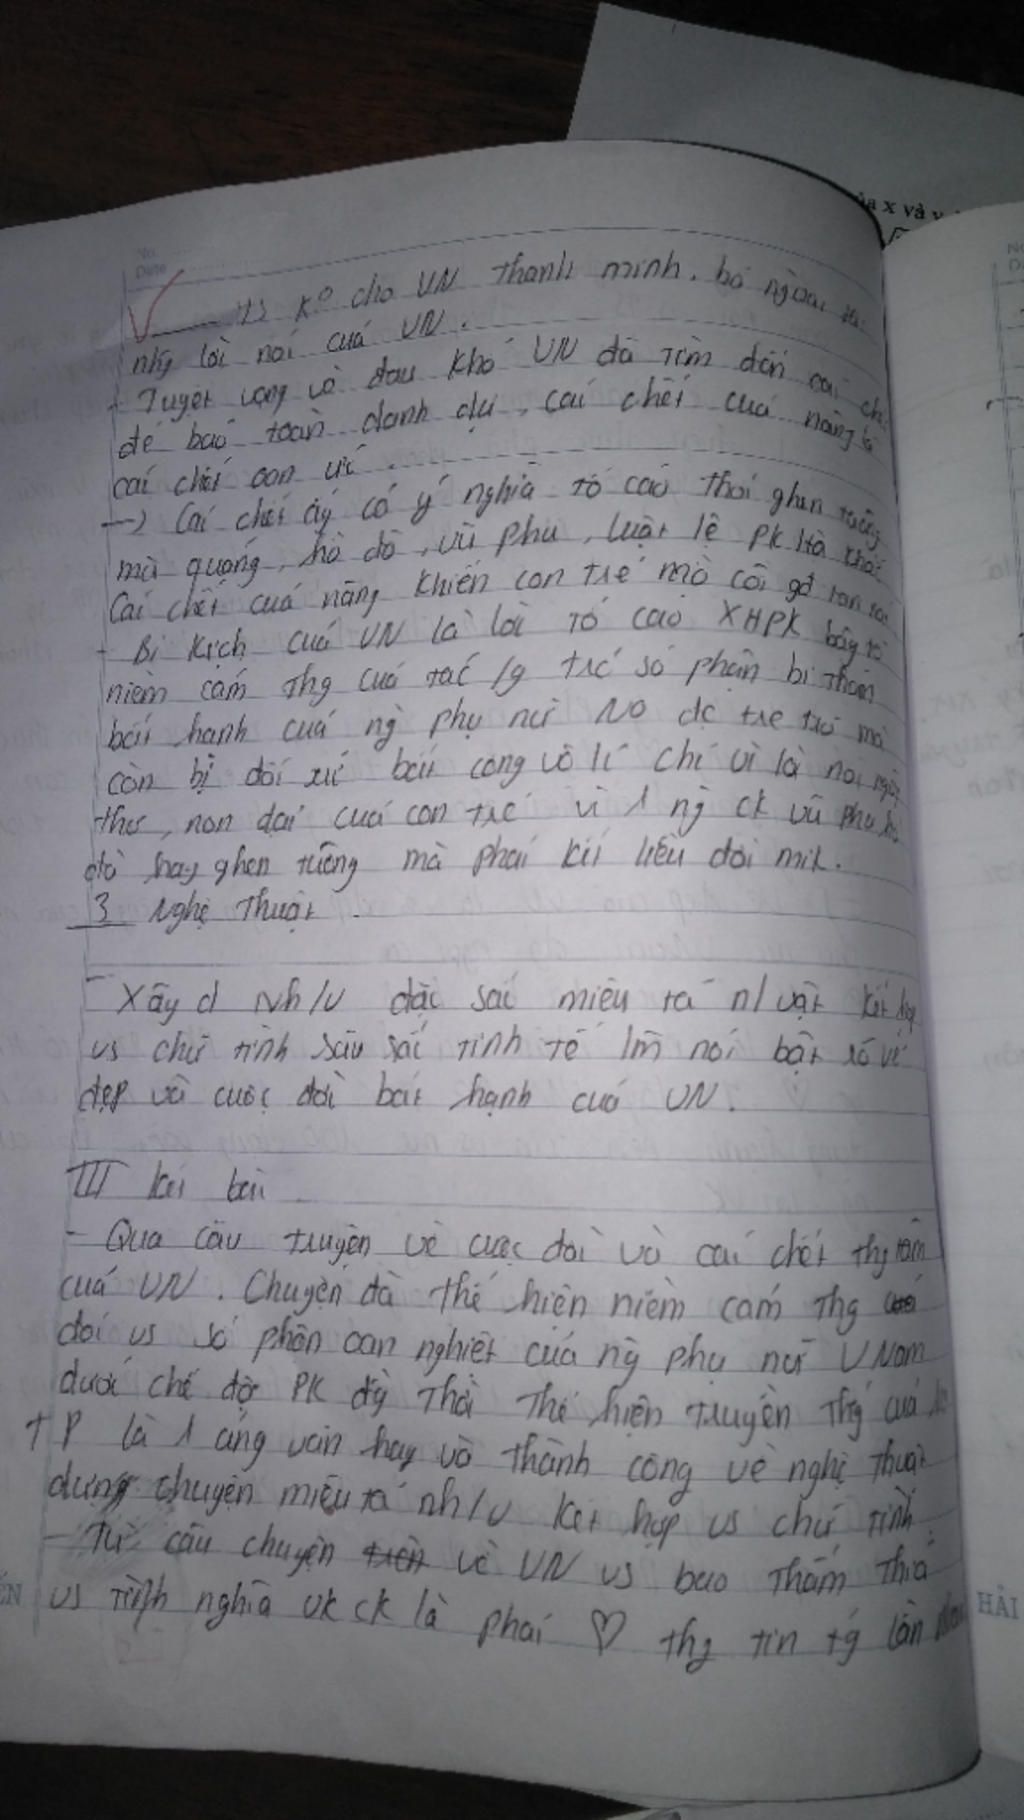 No.
Date
TS K° cho VN Thanh minh. bỏ ngoài tai
nhg lời nói của VN.
- Tuyệt vọng và đau khổ VN đã tìm đến cái
để bảo toàn danh dự, cái chết của nàng là
cái chết oan ức.
→ Cái chết ấy có ý nghĩa tố cáo thói ghen tuông
mù quáng, hồ đồ, vũ phu, luật lệ PK Hà khắc
Cái chết của nàng khiến con trẻ mồ côi gđ tan
- Bi kịch của VN là lời tố cáo XHPK bày tỏ
niềm cảm thg của tác /g trc số phận bi thảm
bất hạnh của ng phụ nữ No đc che trở mà
còn bị đối xử bất công vô lí chỉ vì lời nói ngây
thơ, non dại của con trẻ vì 1 ng ck vũ phu
đồ hay ghen tuông mà phải kết liễu đời mk.
3 Nghệ Thuật
- Xây d Nh/v đặc sắc miêu tả n/vật kết hợp
vs chữ tình sâu sắc tinh tế lm nổi bật rõ vẻ
đẹp và cuộc đời bất hạnh của VN.
III kết bài
- Qua câu truyện về cuộc đời và cái chết thg tâm
của VN. Chuyện đã thể hiện niềm cảm thg
đối vs số phận oan nghiệt của ng phụ nữ VNam
dưới chế độ PK đồg Thời Thể hiện truyền Thg của
TP là 1 áng văn hay và thành công về nghệ thuật
dựng chuyện miêu tả nh/v kết hợp vs chữ tình
- Từ câu chuyện về VN vs bao thấm thía
vs tình nghĩa vk ck là phải ♡ thg tin tg lẫn
HẢI
ủa x và y